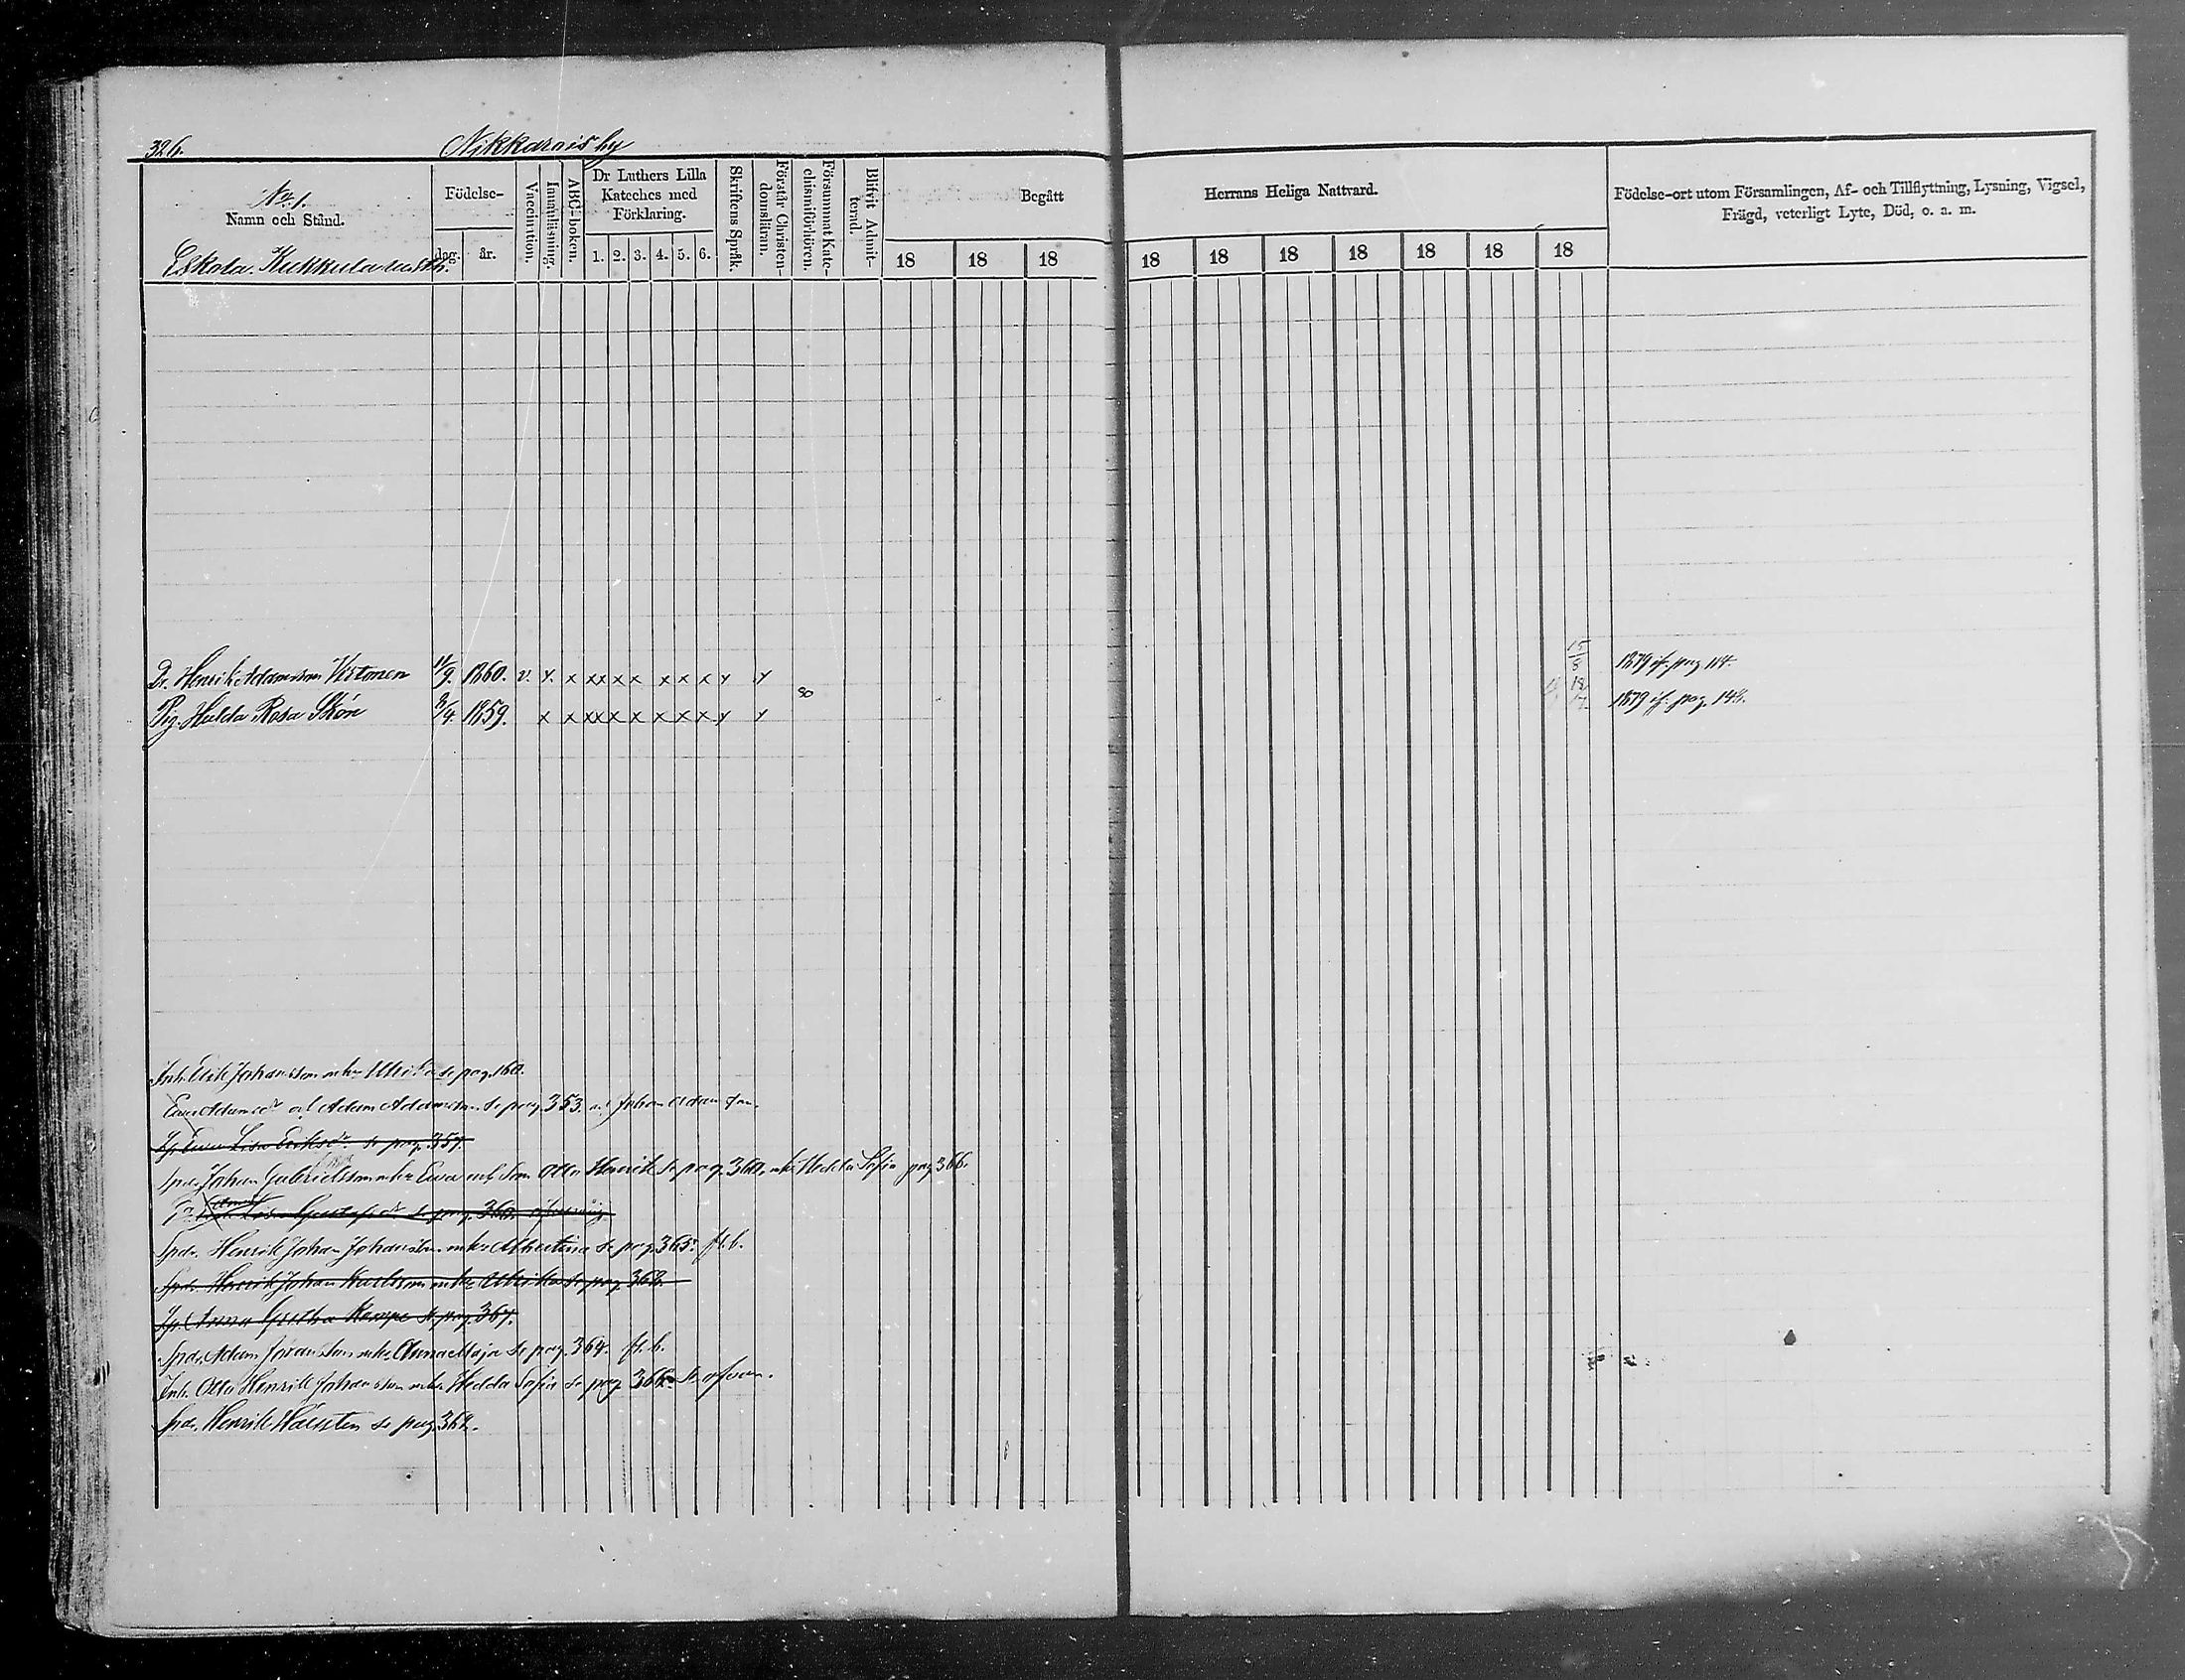 326.
Nikkarais by
No 1.
Namn och Stånd.
Eskola. Kukkula rusth.
Födelse-
dag.
år.
Vaccination.
Innanläsning.
ABC-boken.
Dr Luthers Lilla
Kateches med
Förklaring.
1. 2. 3. 4. 5. 6.
Skriftens Språk.
Förstår Christen-
domsläran.
Försummat Kate-
chismiförhören.
Blifvit Admit-
terad.
Begått
Herrans Heliga Nattvard.
18 18 18 18 18 18 18 18 18 18
Födelse-ort utom Församlingen, Af- och Tillflyttning, Lysning, Vigsel,
Frägd, veterligt Lyte, Död, o. a. m.
Dr. Henrik Adamsson Virtonen 11/9. 1860. v. x. x xx x x x x x x x 15/8 1879 if. pag 114.
80
Pig. Hulda Rosa Skön 8/4. 1859. x x xx x x x x x x x 1879 if. pag. 148.
Inh. Erik Johansson m hu Ulrika se pag. 160.
Adam Adamsson se pag. 353. Johan Adamsson.
Lisa Eriksdr se pag. 357.
Spd. Johan Gabrielsson m hu Eva och Son Otto Henrik se pag. 360. m hu Hedda Sofia pag 366.
Lisa Gustafsdr se pag. 360.
Spdr. Henrik Johan Johansson m hu Albertina se pag. 365. fl. b.
Spdr. Henrik Johan Karlsson m hu Ulrika se pag. 368.
Anna Greta Kempe se pag. 367.
Spdr. Adam Johansson m hu Anna Maja se pag. 364. fl. b.
Inh. Otto Henrik Johansson m hu Hedda Sofia se pag 366. se ofvan.
Spdr. Henrik se pag. 362.